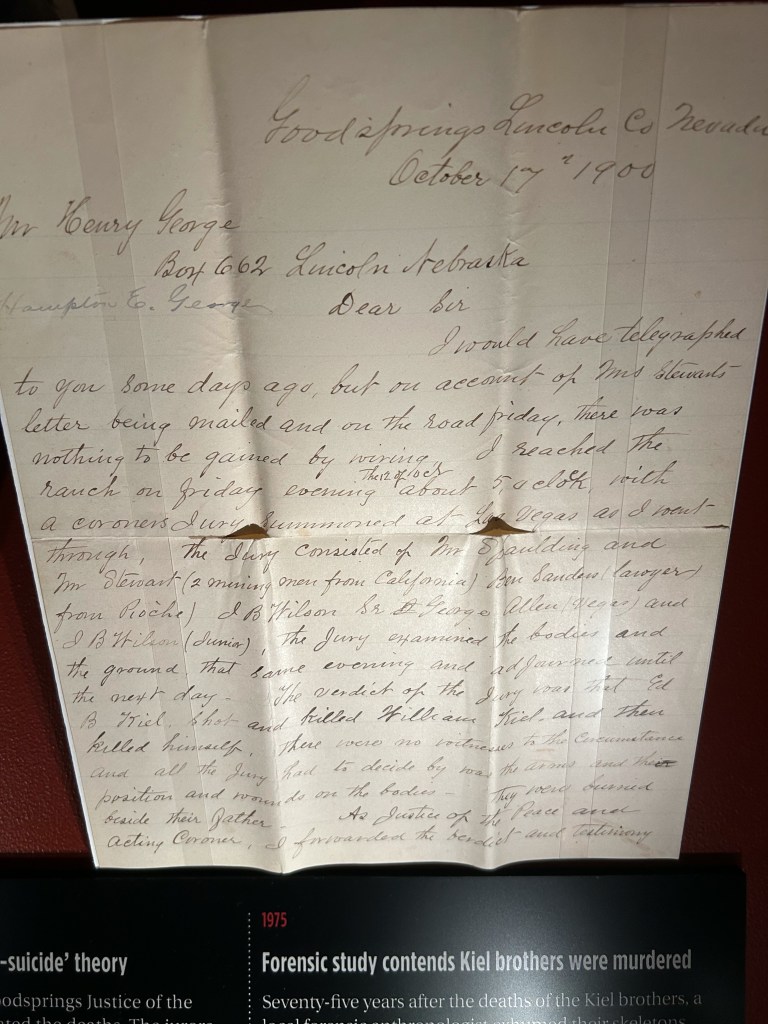 Goodsprings Lincoln Co Nevada
October 17" 1900
Mr Henry George
Box 662 Lincoln Nebraska
Hampton E. George Dear Sir
I would have telegraphed
to you some days ago, but on account of Mrs Stewarts
letter being mailed and on the road friday, there was
nothing to be gained by wiring. I reached the
ranch on friday evening The 12 of Oct about 5, oclok, with
a coroners Jury summoned at Las Vegas as I went
through, The Jury consisted of Mr Spaulding and
Mr Stewart (2 mining men from California) Ben Sanders (lawyer)
from Pioche) J B Wilson Sr George Allen (Vegas) and
J B Wilson (Junior), the Jury examined the bodies and
the ground that same evening and adjourned until
the next day - The verdict of the Jury was that Ed
B Kiel. shot and killed William Kiel. and then
killed himself, There were no witnesses to the Circumstance
and all the Jury had to decide by was the arms and
position and wounds on the bodies - They were buried
beside their father - As Justice of the Peace and
acting Coroner, I forwarded the verdict and testimony
-suicide' theory
oodsprings Justice of the
1975
Forensic study contends Kiel brothers were murdered
Seventy-five years after the deaths of the Kiel brothers, a
local forensic anthropologist exhumed their skeletons